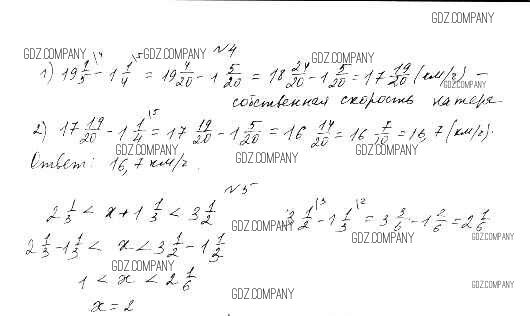 GDZ.COMPANY
№4
GDZ.COMPANY GDZ.COMPANY GDZ.COMPANY
1) 19 1/5 \4 - 1 1/4 \5 = 19 4/20 - 1 5/20 = 18 24/20 - 1 5/20 = 17 19/20 (км/ч) -
GDZ.COMPANY
собственная скорость катера.
2) 17 19/20 - 1 1/4 \5 = 17 19/20 - 1 5/20 = 16 14/20 = 16 7/10 = 16,7 (км/ч).
GDZ.COMPANY GDZ.COMPANY GDZ.COMPANY
Ответ: 16,7 км/ч.
№5
2 1/3 < x + 1 1/3 < 3 1/2 3 1/2 \3 - 1 1/3 \2 = 3 3/6 - 1 2/6 = 2 1/6
GDZ.COMPANY GDZ.COMPANY GDZ.COMPANY
2 1/3 - 1 1/3 < x < 3 1/2 - 1 1/3
GDZ.COMPANY
1 < x < 2 1/6
GDZ.COMPANY GDZ.COMPANY
x = 2